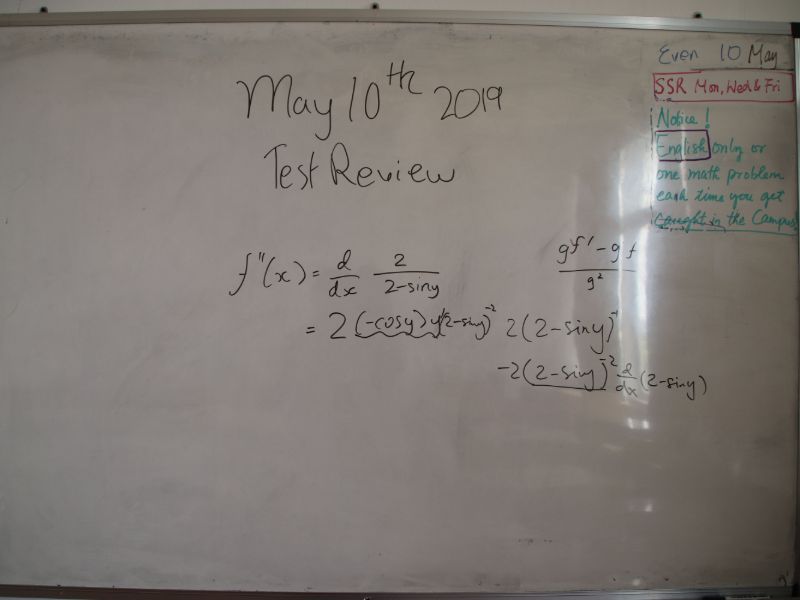 May 10th 2019
Test Review
f"(x) = d/dx 2/(2-siny)
= 2(-cosy)y'(2-siny)^-2
gf' - g f / g²
2(2-siny)^-1
-2(2-siny)^-2 d/dx (2-siny)
Even 10 May
SSR Mon, Wed & Fri
Notice!
English only or
one math problem
each time you get
caught in the Campus